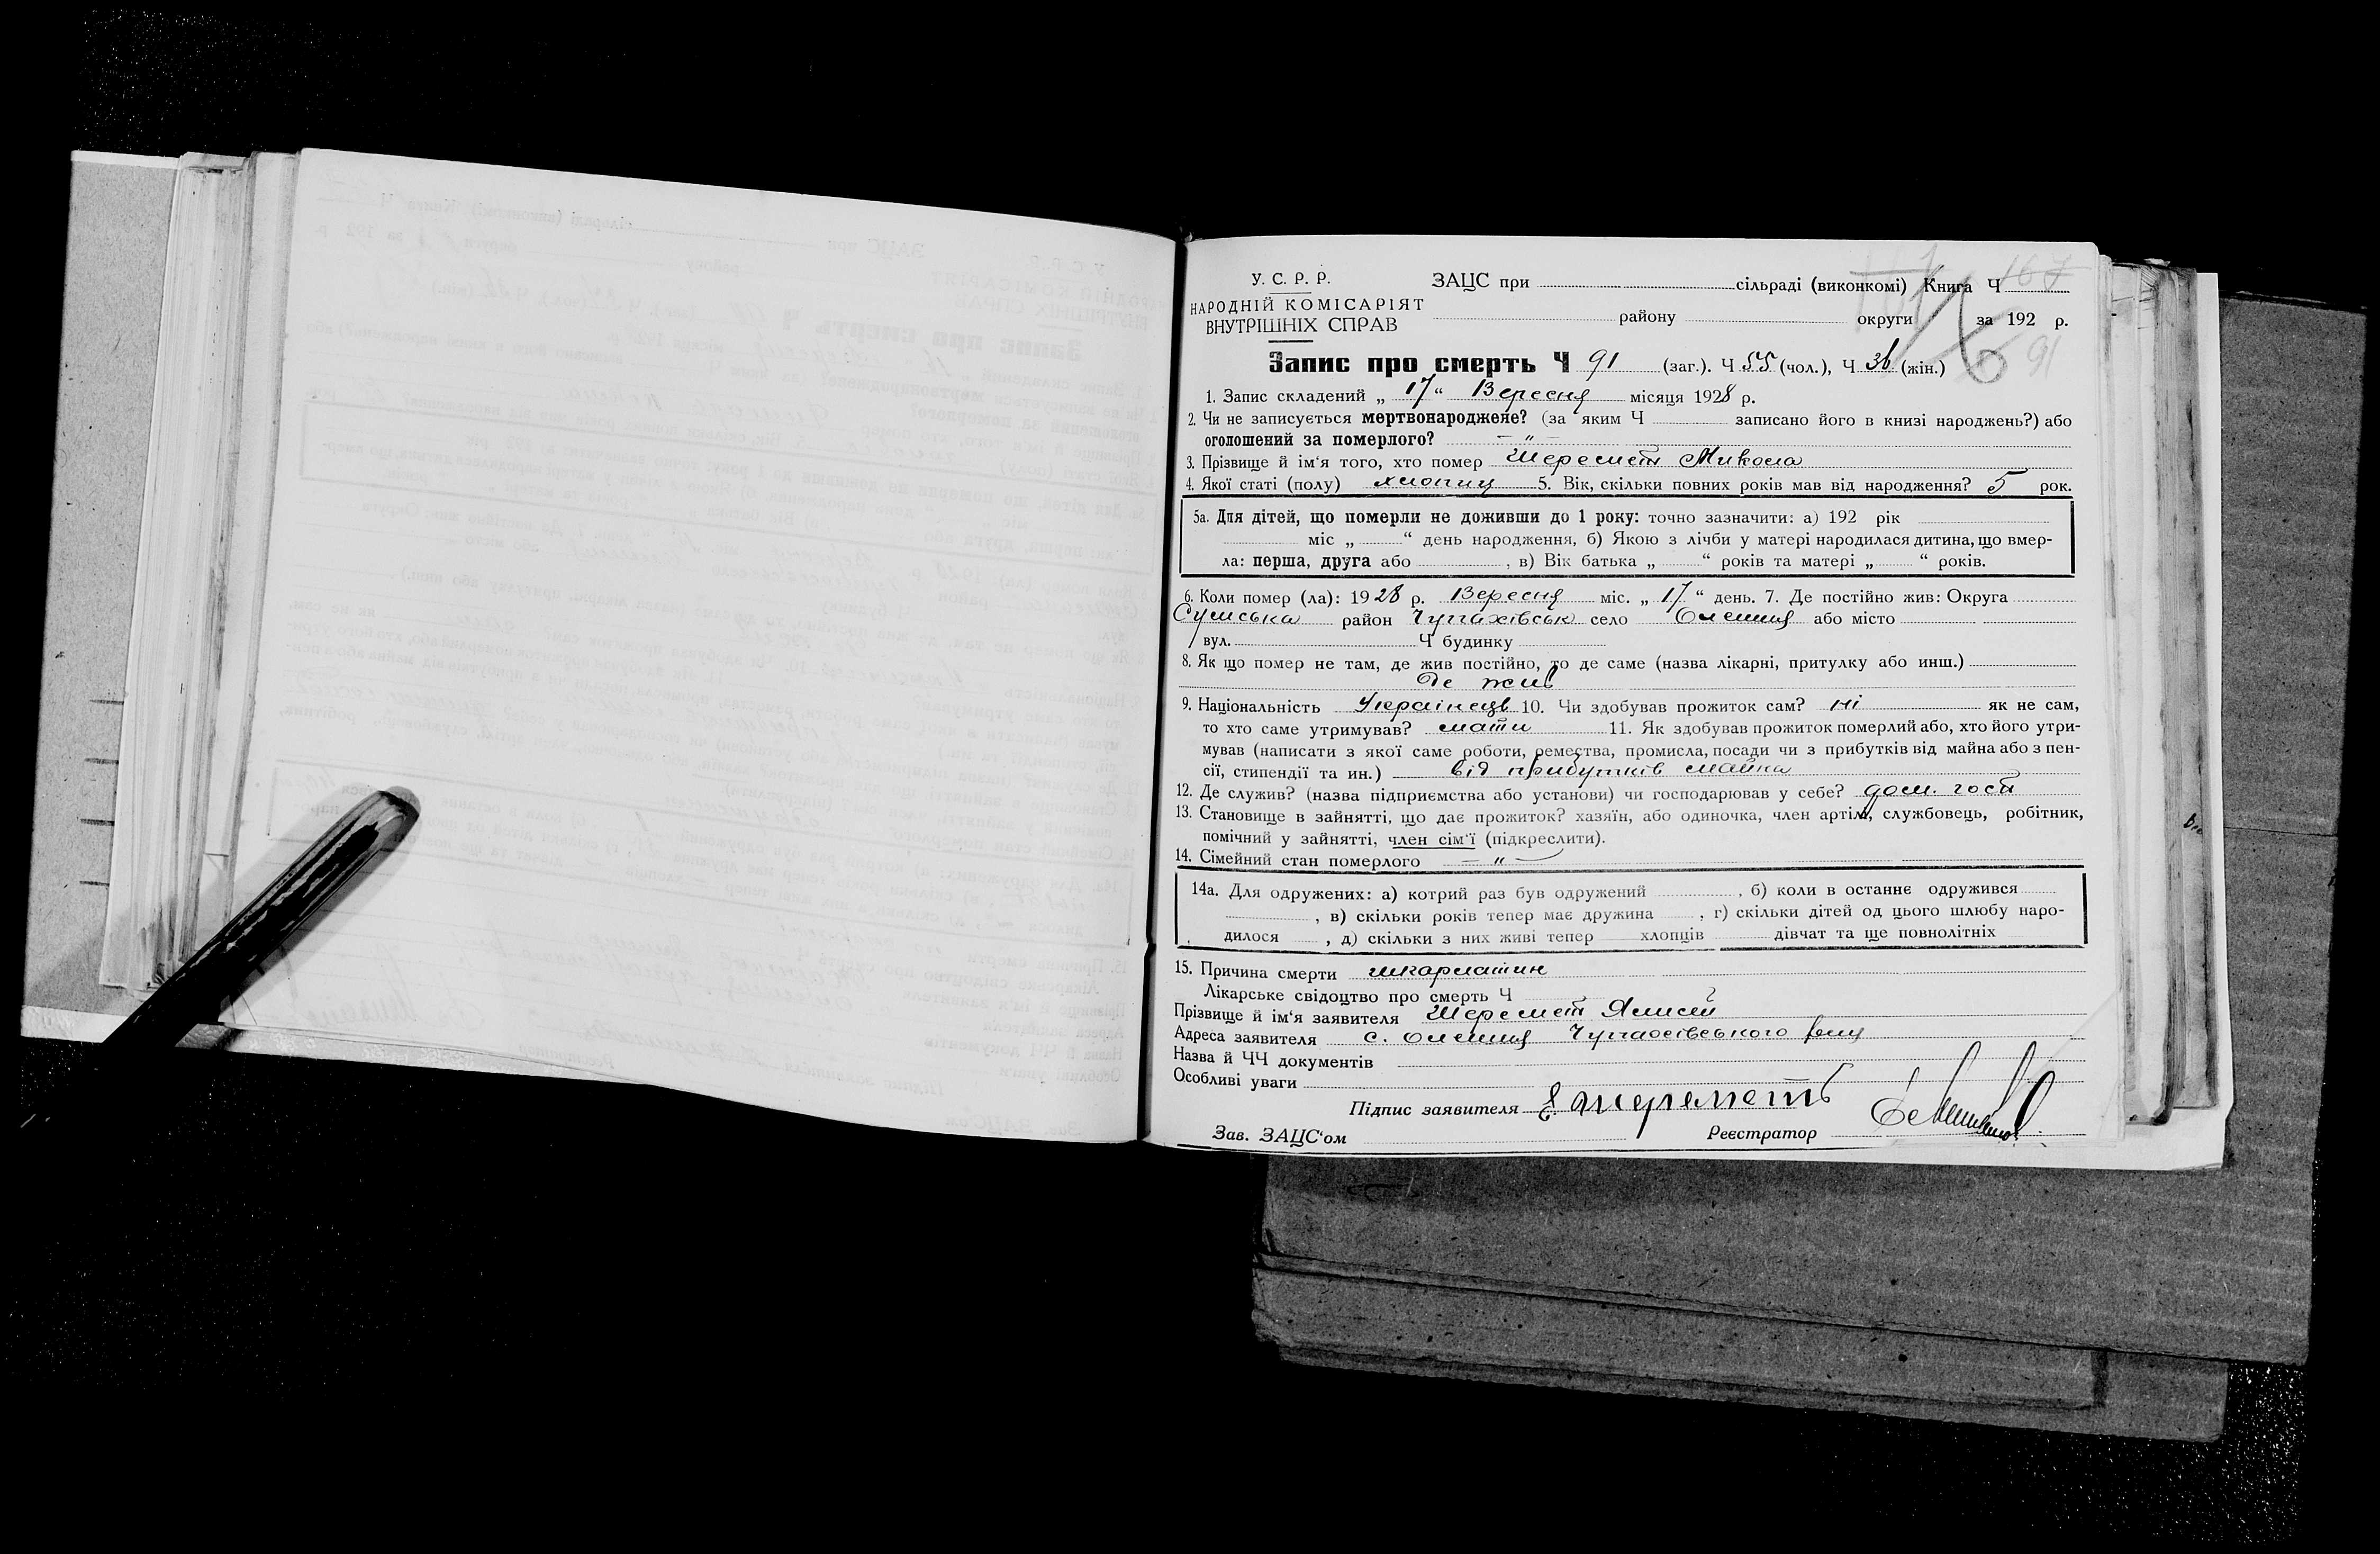 У. С. Р. Р.
НАРОДНІЙ КОМІСАРІЯТ
ВНУТРІШНІХ СПРАВ
ЗАЦС при сільраді (виконкомі) Книга Ч 167
району округи за 192 р.
91
Запис про смерть Ч 91 (заг.). Ч 55 (чол.), Ч 36 (жін.)
1. Запис складений „ 17 “ Вересня місяця 1928 р.
2. Чи не записується мертвонароджене? (за яким Ч записано його в книзі народжень?) або
оголошений за померлого? — „ —
3. Прізвище й ім‘я того, хто помер Шеремет Микола
4. Якої статі (полу) хлопиц 5. Вік, скільки повних років мав від народження? 5 рок.
5а. Для дітей, що померли не доживши до 1 року: точно зазначити: а) 192 рік
міс „ “ день народження, б) Якою з лічби у матері народилася дитина, що вмер-
ла: перша, друга або , в) Вік батька „ “ років та матері „ “ років.
6. Коли помер (ла): 1928 р. Вересня міс. „ 17 “ день. 7. Де постійно жив: Округа
Сумська район Чупахівськ село Олешня або місто
вул. Ч будинку
8. Як що помер не там, де жив постійно, то де саме (назва лікарні, притулку або инш.)
де жив
9. Національність Українець 10. Чи здобував прожиток сам? ні як не сам,
то хто саме утримував? мати 11. Як здобував прожиток померлий або, хто його утри-
мував (написати з якої саме роботи, ремества, промисла, посади чи з прибутків від майна або з пен-
сії, стипендії та ин.) від прибутків майна
12. Де служив? (назва підприємства або установи) чи господарював у себе? дом. госп
13. Становище в зайнятті, що дає прожиток? хазяїн, або одиночка, член артілі, службовець, робітник,
помічний у зайнятті, член сім‘ї (підкреслити).
14. Сімейний стан померлого — „ —
14а. Для одружених: а) котрий раз був одружений , б) коли в останнє одружився
, в) скільки років тепер має дружина , г) скільки дітей од цього шлюбу наро-
дилося , д) скільки з них живі тепер хлопців дівчат та ще повнолітніх
15. Причина смерти шкарлатин
Лікарське свідоцтво про смерть Ч
Прізвище й ім‘я заявителя Шеремет
Адреса заявителя с. Олешня Чупахівського рну
Назва й ЧЧ документів
Особливі уваги
Підпис заявителя Є Шереметь
Зав. ЗАЦС‘ом Реєстратор